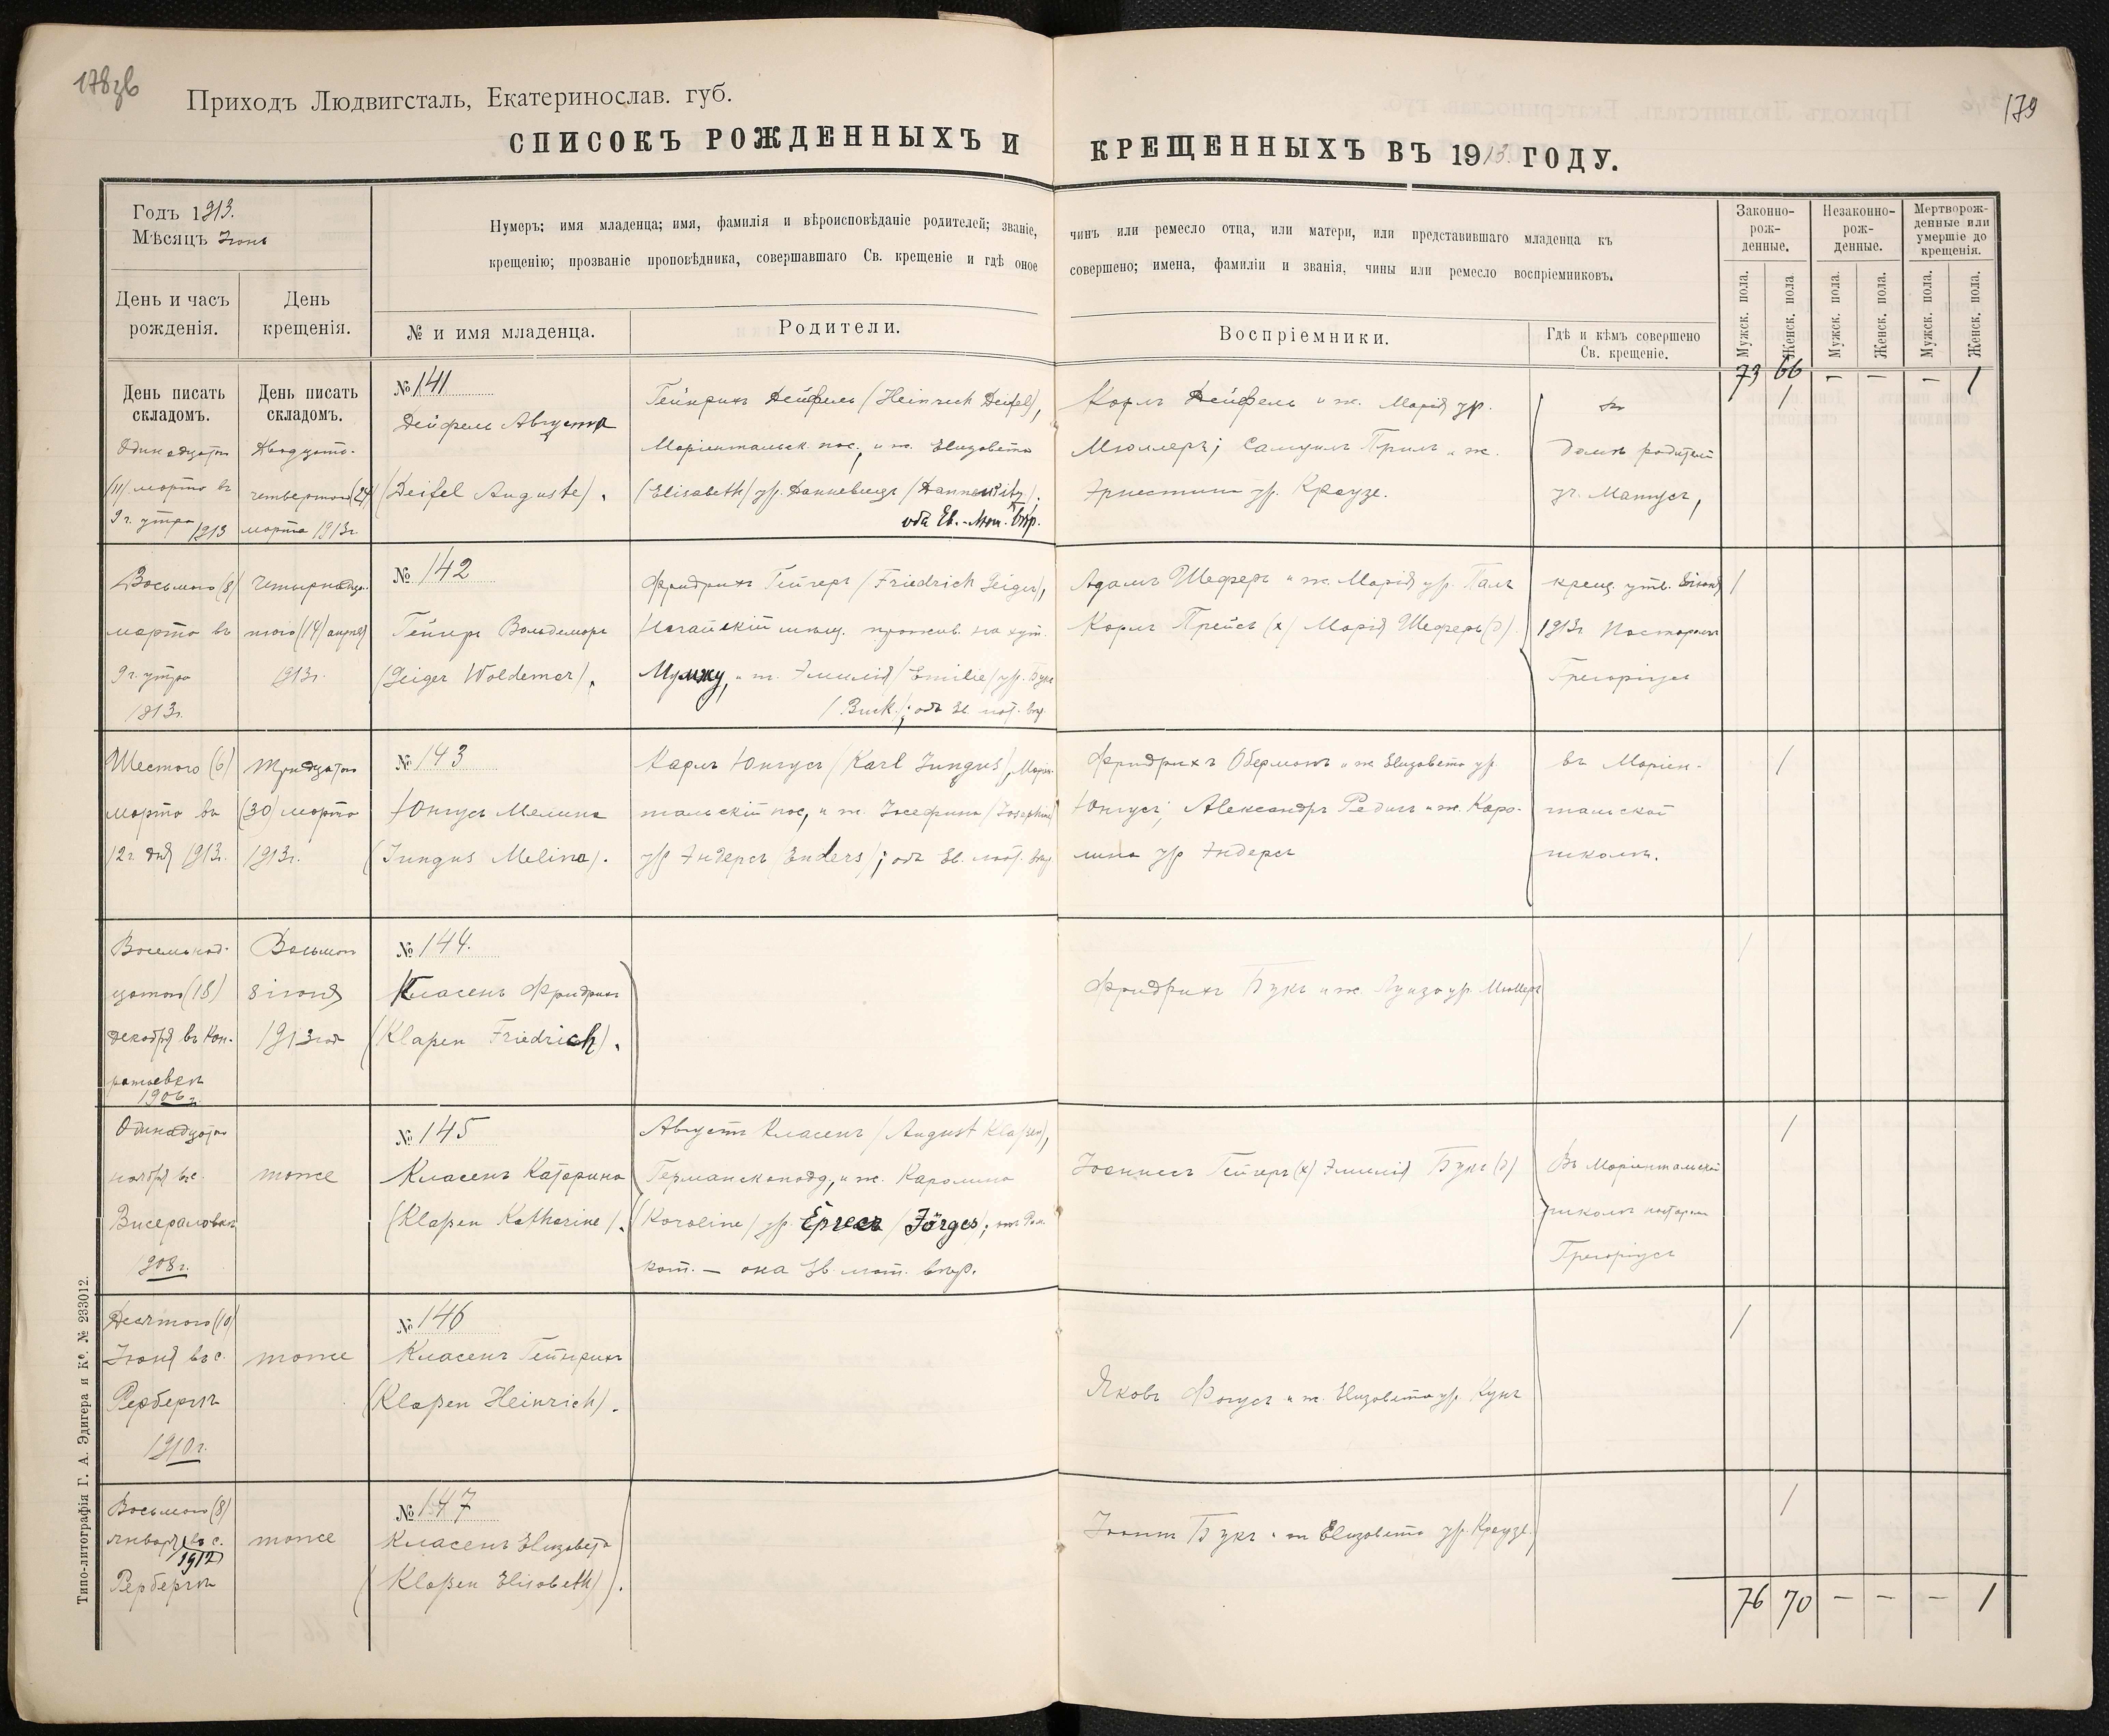 178 зв
179
Приходъ Людвигсталь, Екатеринослав. губ.
СПИСОКЪ РОЖДЕННЫХЪ И КРЕЩЕННЫХЪ ВЪ 1913 ГОДУ.
Годъ 1913.
Мѣсяцъ Іюнь
Нумеръ; имя младенца; имя, фамилія и вѣроисповѣданіе родителей; званіе, чинъ или ремесло отца, или матери, или представившаго младенца къ
крещенію; прозваніе проповѣдника, совершавшаго Св. крещеніе и гдѣ оное совершено; имена, фамиліи и званія, чины или ремесло воспріемниковъ.
Законно-рож-денные.
Незаконно-рож-денные.
Мертворож-денные или умершіе до крещенія.
День и часъ рожденія.
День крещенія.
№ и имя младенца.
Родители.
Воспріемники.
Гдѣ и кѣмъ совершено Св. крещеніе.
Мужск. пола. Женск. пола. Мужск. пола. Женск. пола. Мужск. пола. Женск. пола.
73 66 — — — 1
День писать складомъ.
День писать складомъ.
Одинадцатаго
(11) марта въ
9 ч. утра 1913
Двадцать-
четвертаго (24)
марта 1913г.
№ 141
Дейфель Августа
(Deifel Auguste).
Гейнрихъ Дейфель (Heinrich Deifel),
Маріентальск. пос., и ж. Елизавета
(Elisabeth) ур.Данневицъ (Dannewitz).
оба Ев.-Лют. вѣр.
Карлъ Дейфель и ж. Марія ур.
Мюллеръ; Самуилъ Прилъ и ж.
Эрнестина ур. Краузе.
въ
домѣ родителей
уч. Матусъ,
1
Восьмого (8)
марта въ
9 ч. утра
1913г.
Четырнадца-
таго (14) апрѣля
1913г.
№ 142
Гейгеръ Вольдемаръ
(Geiger Woldemar).
Фридрихъ Гейгеръ (Friedrich Geiger),
Ногайскій мѣщ. прожив. на хут.
и ж. Эмилія (Emilie) ур. Букъ
(Buck); оба Ев. лют. вѣр.
Адамъ Шеферъ и ж. Марія ур. Палъ
Карлъ Прейсъ (х) Марія Шеферъ (д).
крещ. утв. 8 іюня
1913г. Пасторомъ
Грегоріусъ
1
Шестого (6)
марта въ
12 ч. дня 1913г.
Тридцатаго
(30) марта
1913г.
№ 143
Юнгусъ Мелина
(Jungus Melina).
Карлъ Юнгусъ (Karl Jungus), Маріен-
тальскій пос., и ж. Іосефина (Josephine)
ур. Эндерсъ (Enders); оба Ев. лют. вѣр.
Фридрихъ Оберманъ и ж. Елизавета ур.
Юнгусъ; Александръ Редигъ и ж. Каро-
лина ур. Эндерсъ
въ Маріен-
тальской
школѣ.
1
Восемнад-
цатаго (18)
декабря въ Кон-
ратьевкѣ
1906 г.
Восьмого
8 іюня
1913 год
№ 144.
Класенъ Фридрихъ
(Klaßen Friedrich).
Фридрихъ Букъ и ж. Луиза ур. Мюллеръ
1
Одинадцатаго
ноября въ с.
1908 г.
тоже
№ 145
Класенъ Катарина
(Klaßen Katharine).
Августъ Класенъ (August Klaßen),
Германскоподд., и ж. Каролина
(Karoline) ур. Ергесъ (Jörges); онъ Рим.
кат. — она Ев. лют. вѣр.
Іоаннесъ Гейгеръ (х) Эмилія Букъ (д)
Въ Маріентальской
школѣ пасторомъ
Грегоріусъ
1
Десятого (10)
Іюня въ с.
Рербергъ
1910 г.
тоже
№ 146
Класенъ Гейнрихъ
(Klaßen Heinrich).
Яковъ Фогусъ и ж. Елизавета ур. Кунъ
1
Восьмого (8)
января въ с.
1912
Рербергъ
тоже
№ 147
Класенъ Елизавета
(Klaßen Elisabeth).
Іоганъ Букъ и ж. Елизавета ур. Краузе.
1
76 70 — — — 1
Типо-литографія Г. А. Эдигера и Кº. № 233012.